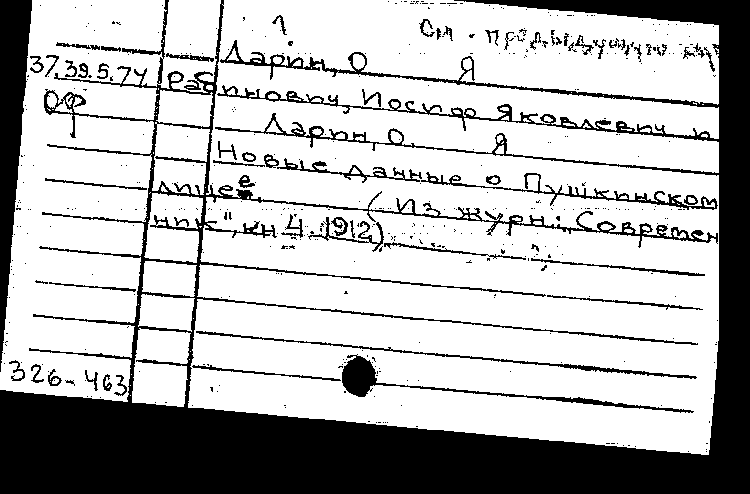 1.
См. предыдущую
Ларин, О Я
37.39.5.74 Рабинович, Иосиф Яковлевич и
ОФ
Ларин, О. Я
Новые данные о Пушкинском
лицее.
(Из журн.: „Современ
ник", кн 4. 1912)
326-463